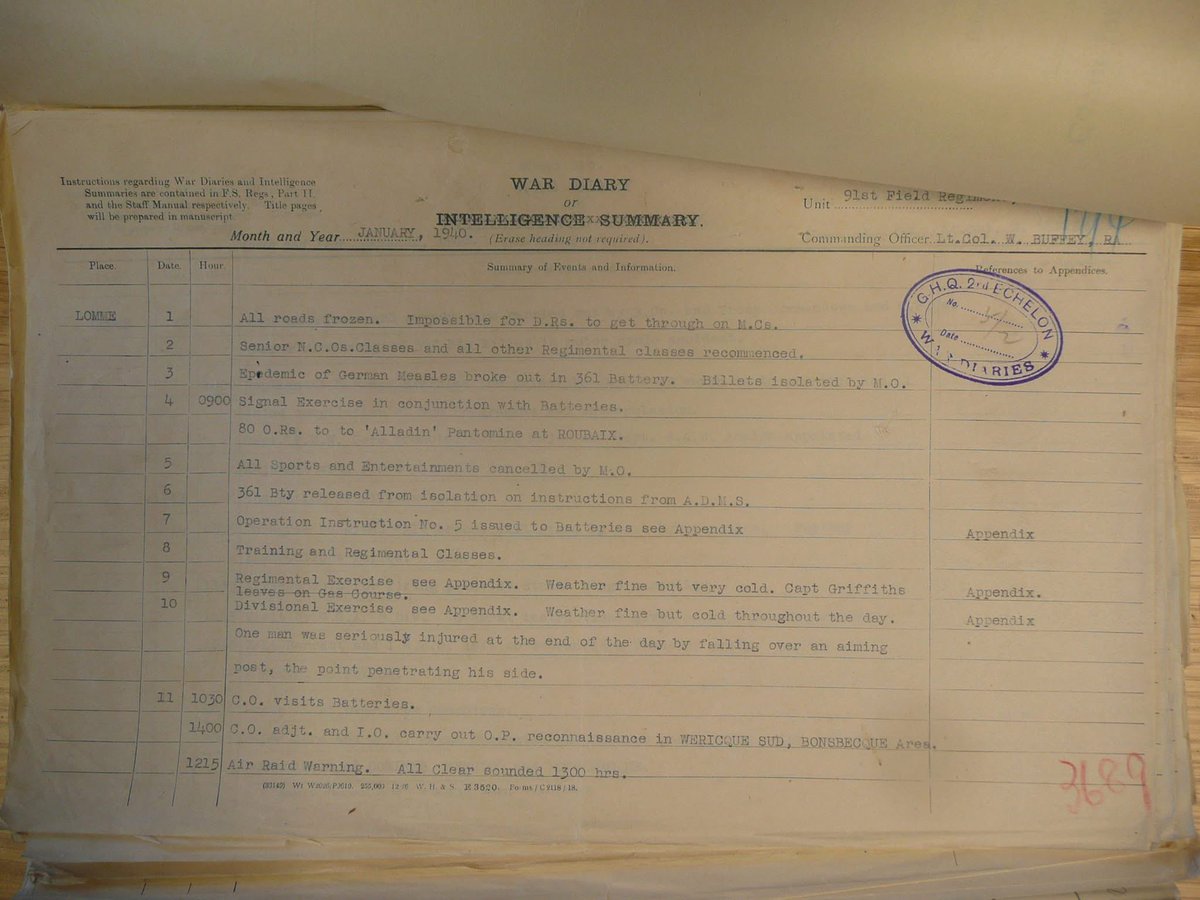 Instructions regarding War Diaries and Intelligence
Summaries are contained in F.S. Regs., Part II.
and the Staff Manual respectively. Title pages
will be prepared in manuscript.
WAR DIARY
or
INTELLIGENCE SUMMARY.
(Erase heading not required).
Month and Year JANUARY, 1940.
Unit 91st Field Regiment,
Commanding Officer Lt.Col. W. BUFFEY, RA
Place. Date. Hour. Summary of Events and Information. References to Appendices.
G.H.Q. 2nd ECHELON
No.
Date
WAR DIARIES
LOMME 1 All roads frozen. Impossible for D.Rs. to get through on M.Cs.
2 Senior N.C.Os.Classes and all other Regimental classes recommenced.
3 Epedemic of German Measles broke out in 361 Battery. Billets isolated by M.O.
4 0900 Signal Exercise in conjunction with Batteries.
80 O.Rs. to to 'Alladin' Pantomine at ROUBAIX.
5 All Sports and Entertainments cancelled by M.O.
6 361 Bty released from isolation on instructions from A.D.M.S.
7 Operation Instruction No. 5 issued to Batteries see Appendix Appendix
8 Training and Regimental Classes.
9 Regimental Exercise see Appendix. Weather fine but very cold. Capt Griffiths Appendix.
leaves on Gas Course.
10 Divisional Exercise see Appendix. Weather fine but cold throughout the day. Appendix
One man was seriously injured at the end of the day by falling over an aiming
post, the point penetrating his side.
11 1030 C.O. visits Batteries.
1400 C.O. adjt. and I.O. carry out O.P. reconnaissance in WERICQUE SUD, BONSBECQUE Area.
1215 Air Raid Warning. All Clear sounded 1300 hrs.
W. H. & S. E 3620. Forms/C2118/18.
3689